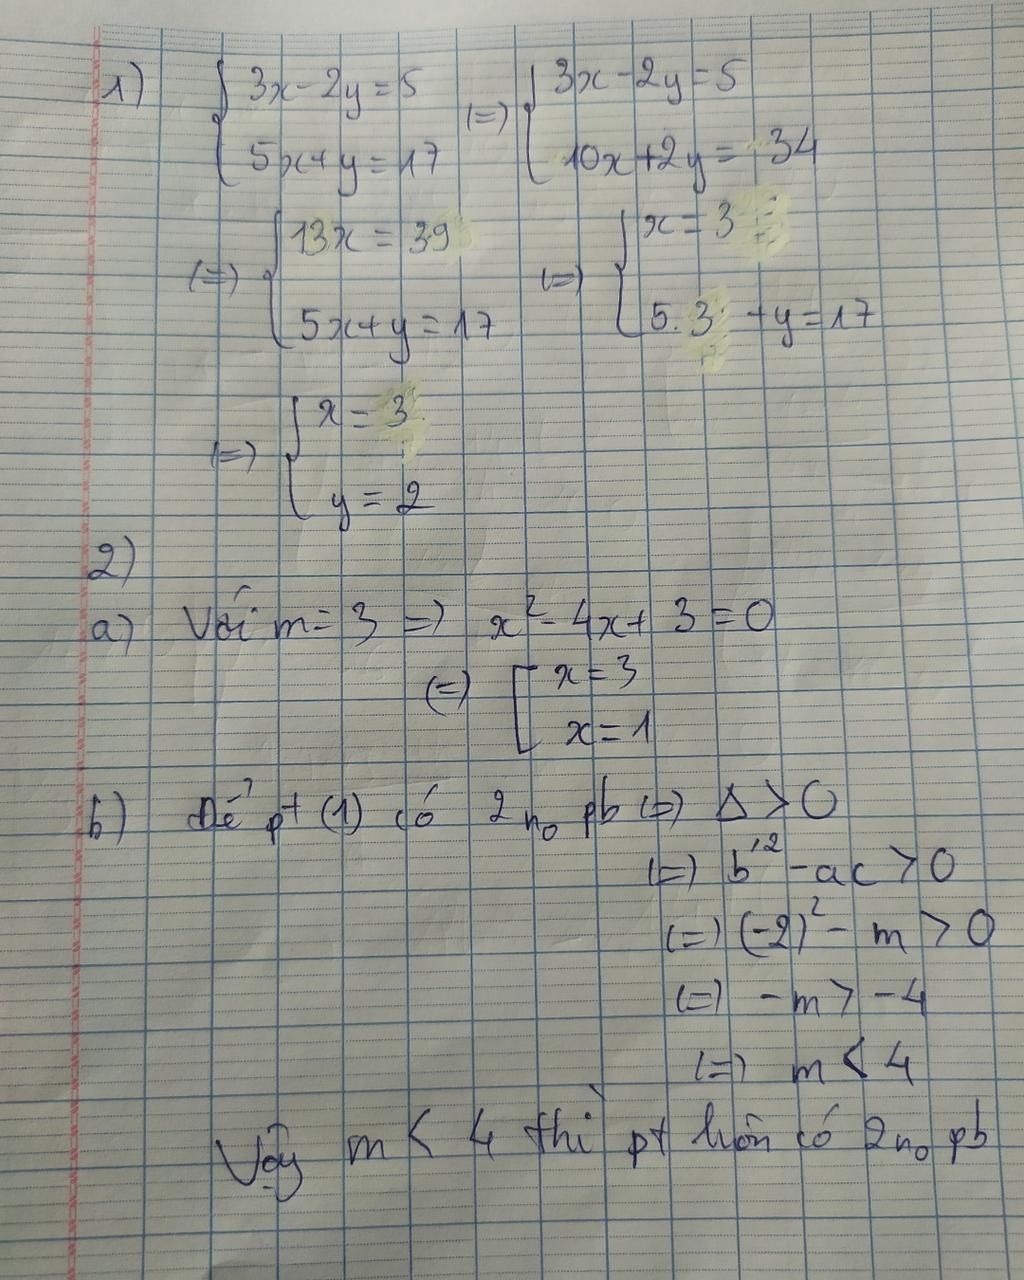 1) { 3x - 2y = 5 (=) { 3x - 2y = 5
{ 5x + y = 17 { 10x + 2y = 34
(=) { 13x = 39 (=) { x = 3
{ 5x + y = 17 { 5.3 + y = 17
(=) { x = 3
{ y = 2
2)
a) Với m = 3 => x² - 4x + 3 = 0
(=) [ x = 3
[ x = 1
b) Để pt (1) có 2 n₀ pb (=) Δ > 0
(=) b'² - ac > 0
(=) (-2)² - m > 0
(=) - m > - 4
(=) m < 4
Vậy m < 4 thì pt luôn có 2 n₀ pb